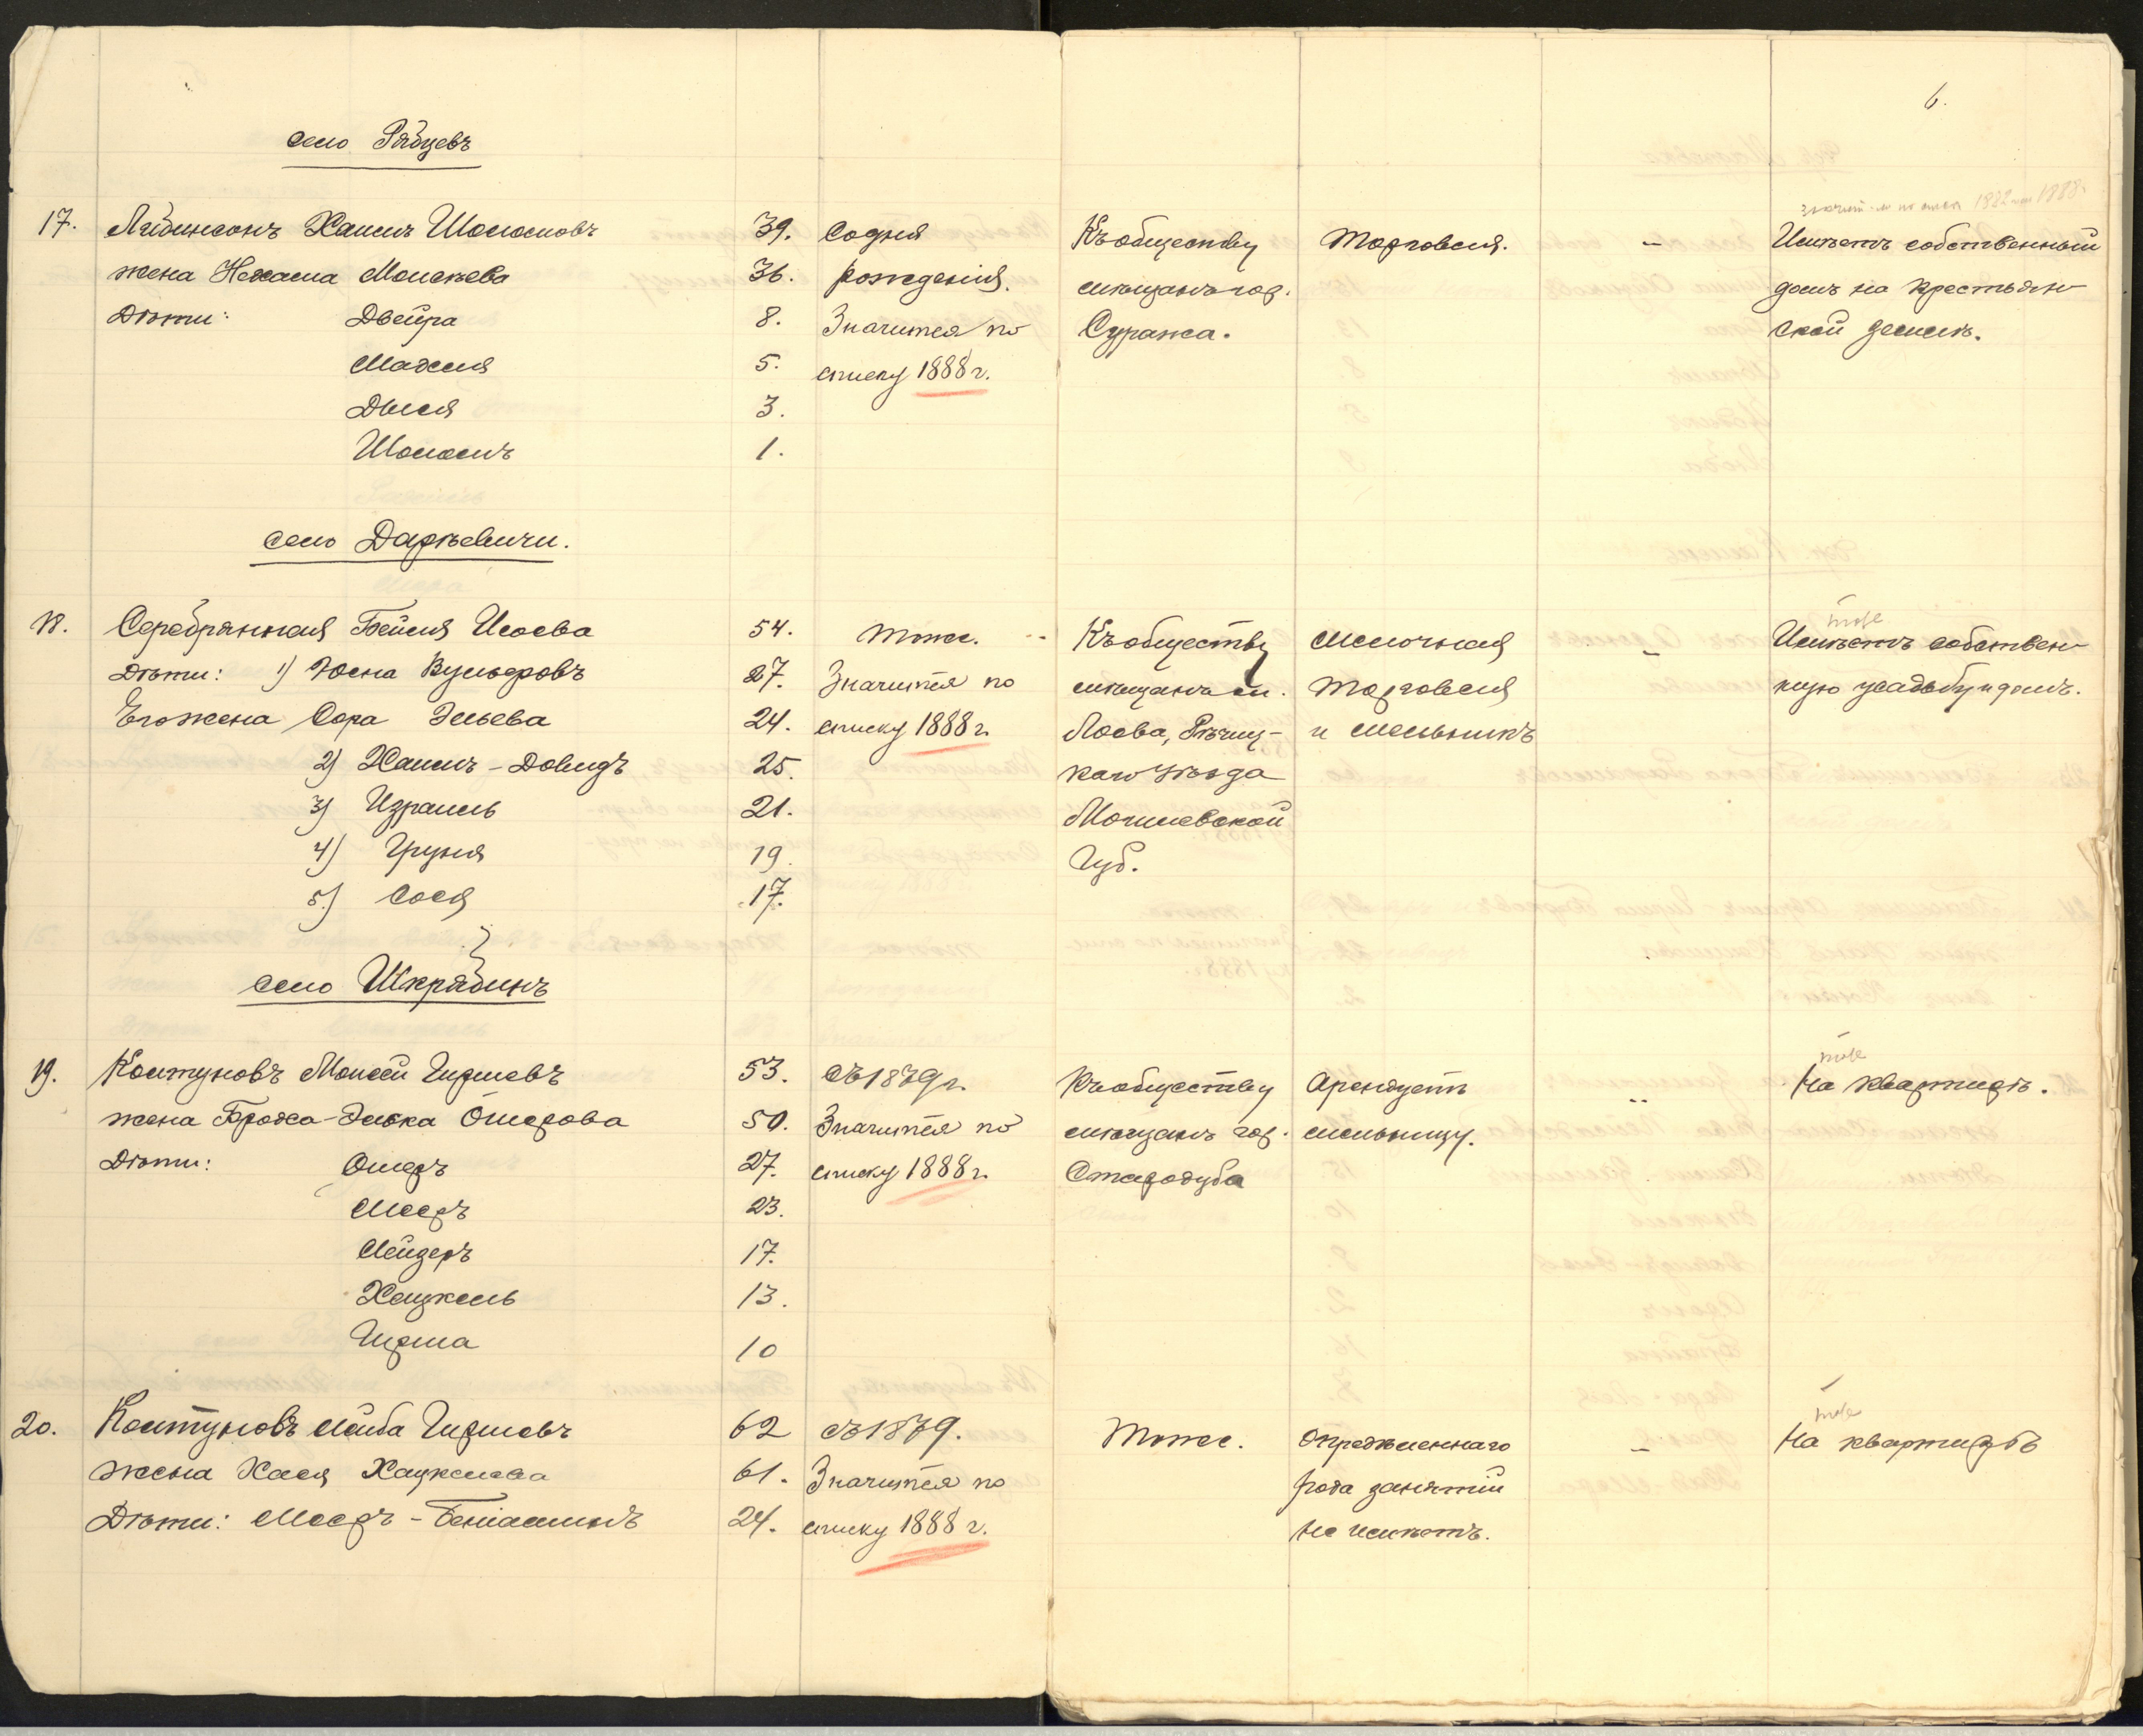 6.
село Рябцевъ
17. Лябинсонъ Хаимъ Шоломовъ 39. Со дня Къ обществу Торговля. — Имѣетъ собственный
жена Нехама Моисѣева 36. рожденія. мѣщанъ гор. домъ на крестьян-
Дѣти: Двейра 8. Значится по Суража. ской землѣ.
Махля 5. списку 1888 г.
Дыся 3.
Шоломъ 1.
село Даркѣевичи.
тоже
18. Серебрянная Бейля Исаева 54. Тоже. Къ обществу Мелочная — Имѣетъ собствен-
Дѣти: 1) Юсна Вульфовъ 27. Значится по мѣщанъ м. торговля ную усадьбу и домъ.
Его жена Сора Эльева 24. списку 1888 г. Лоева, Рѣчиц- и мельникъ
2) Хаимъ-Довидъ 25. каго уѣзда
3) Израиль 21. Могилевской
4) Груня 19. Губ.
5) Сося 17.
село Шкрябинъ
тоже
19. Колтуновъ Моисей Гиршевъ 53. съ 1879 г. Къ обществу Арендуетъ „ На квартирѣ.
жена Броха-Элька Ошерова 50. Значится по мѣщанъ гор. мельницу.
Дѣти: Ошеръ 27. списку 1888 г. Стародуба
Мееръ 23.
Лейзеръ 17.
Хацкель 13.
Гирша 10
тоже
20. Колтуновъ Лейба Гиршевъ 62 съ 1879. Тоже. Опредѣленнаго — На квартирѣ
жена Хася Хацкелева 61. Значится по рода занятій
Дѣти: Мееръ-Беніаминъ 24. списку 1888 г. не имѣетъ.